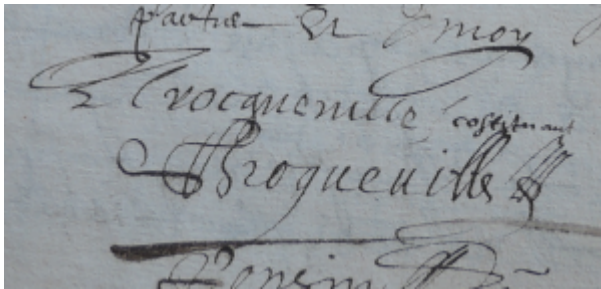 partie et moy
Trocqueville costituant
Throqueville